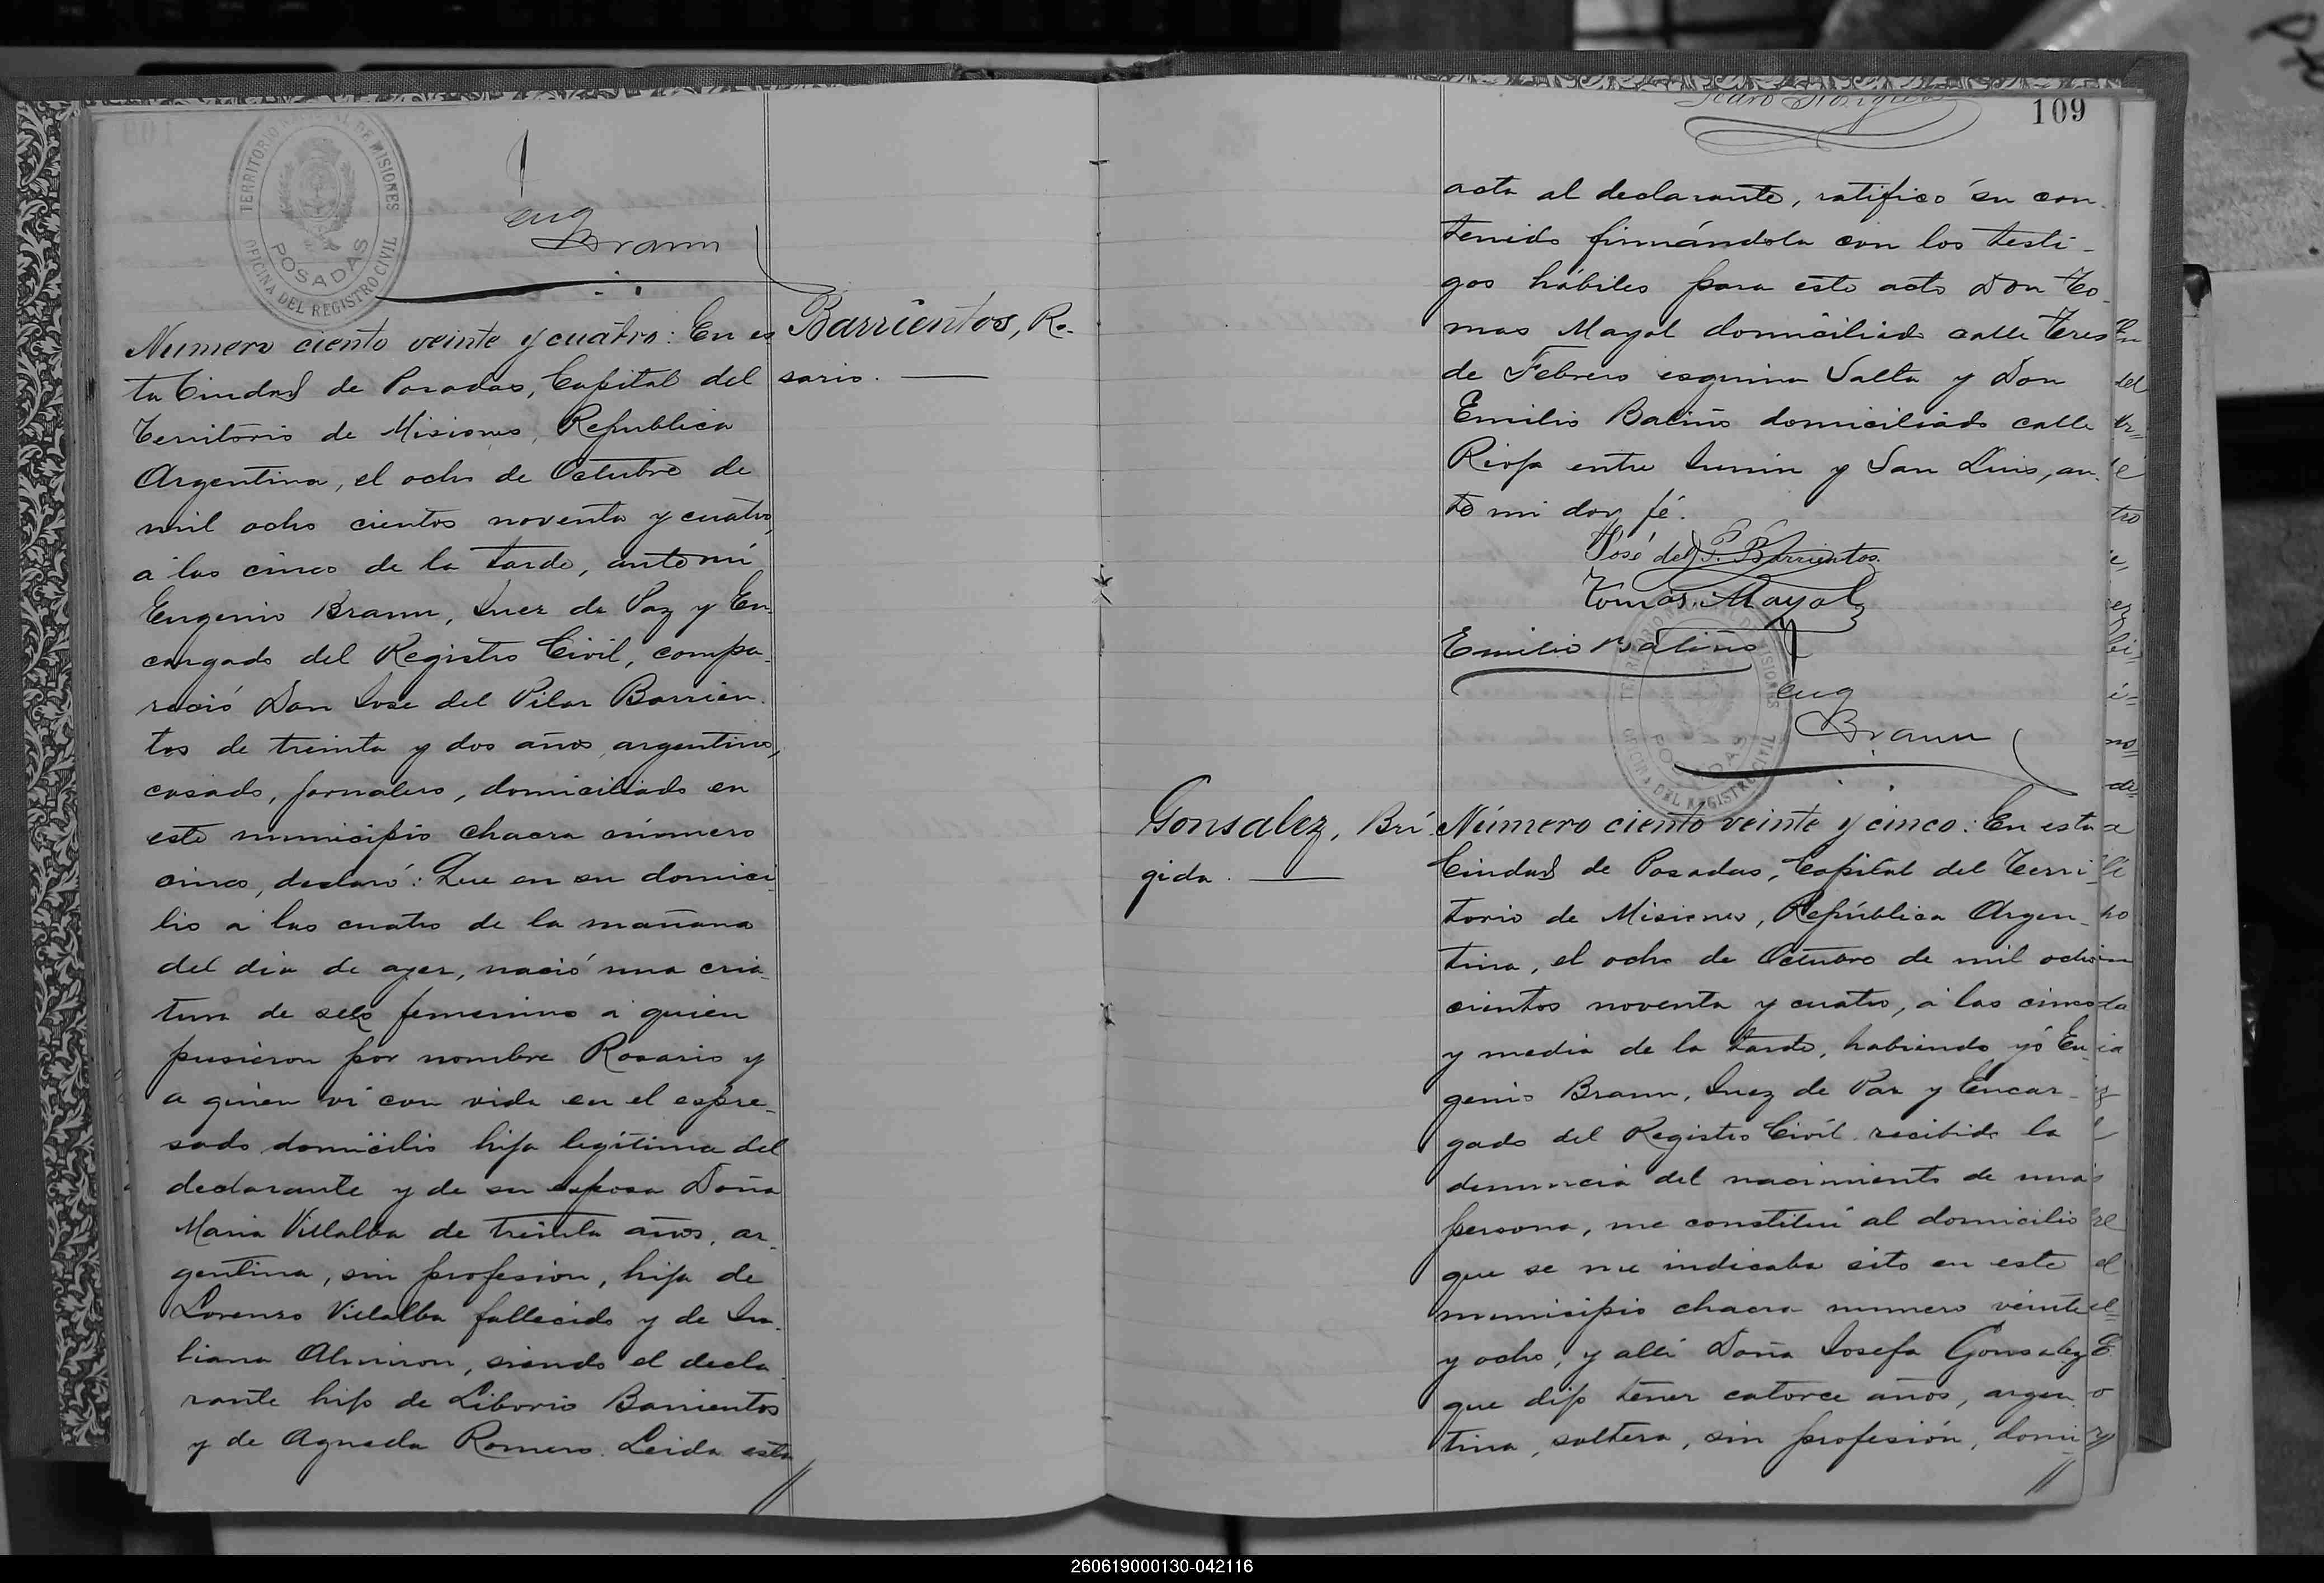 TERRITORIO NACIONAL DE MISIONES
POSADAS
OFICINA DEL REGISTRO CIVIL
Eug
Braun
Barrientos, Ro-
sario.
Numero ciento veinte y cuatro: En es
ta Ciudad de Posadas, Capital del
Territorio de Misiones, Republica
Argentina, el ocho de Octubre de
mil ocho cientos noventa y cuatro,
á las cinco de la tarde, ante mi
Eugenio Braun, Juez de Paz y En-
cargado del Registro Civil, compa-
reció Don Jose del Pilar Barrien-
tos de treinta y dos años, argentino,
casado, jornalero, domiciliado en
este municipio chacra número
cinco, declaró: Que en su domici-
lio a las cuatro de la mañana
del dia de ayer, nació una cria-
tura de sexo femenino á quien
pusieron por nombre Rosario y
a quien vi con vida en el espre-
sado domicilio hija legítima del
declarante y de su esposa Doña
Maria Villalba de treinta años, ar-
gentina, sin profesion, hija de
Lorenzo Villalba fallecido y de Ju-
liana Almiron, siendo el decla-
rante hijo de Liborio Barrientos
y de Agueda Romero. Leida esta
109
acta al declarante, ratificó su con-
tenido firmándola con los testi-
gos hábiles para este acto Don To-
mas Mayol domiciliado calle Tres
de Febrero esquina Salta y Don
Emilio Baliño domiciliado calle
Rioja entre Junin y San Luis, an-
te mi doy fé.
José del P. Barrientos.
Tomás Mayol
Emilio Baliño
Eug
Braun
TERRITORIO NACIONAL DE MISIONES
POSADAS
OFICINA DEL REGISTRO CIVIL
Gonsalez, Brí-
gida.
Número ciento veinte y cinco: En esta
Ciudad de Posadas, Capital del Terri-
torio de Misiones, República Argen-
tina, el ocho de Octubre de mil ocho
cientos noventa y cuatro, á las cinco
y media de la tarde, habiendo yó Eu-
genio Braun, Juez de Paz y Encar-
gado del Registro Civil recibido la
denuncia del nacimiento de una
persona, me constituí al domicilio
que se me indicaba sito en este
municipio chacra numero veinte
y ocho, y allí Doña Josefa Gonsalez
que dijo tener catorce años, argen-
tina, soltera, sin profesión, domi-
260619000130-042116